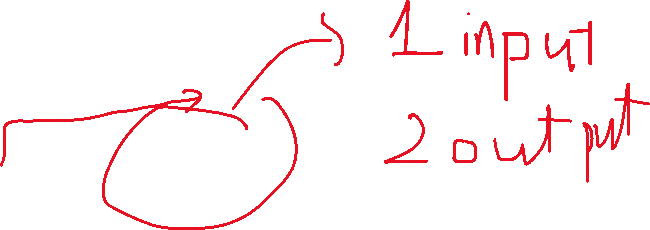 1 input
2 output